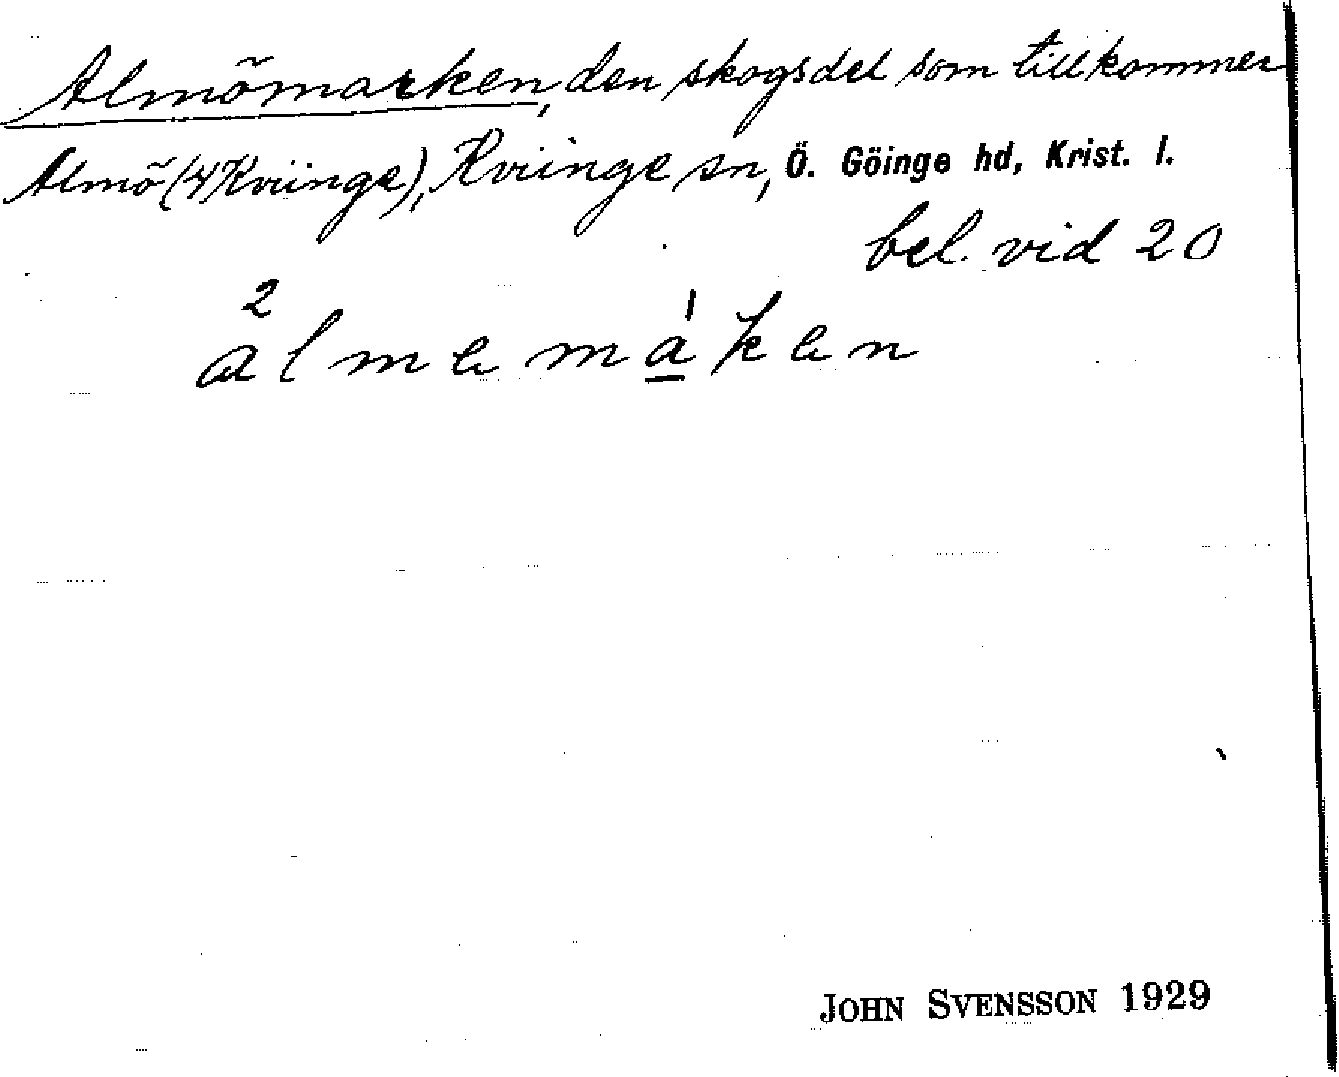 Almömarken, den skogsdel som tillkommer
Almö (4 Kviinge), Kviinge sn, Ö. Göinge hd, Krist. l.
bel. vid 20
2
a l m e m a̱ ̍ k e n
JOHN SVENSSON 1929